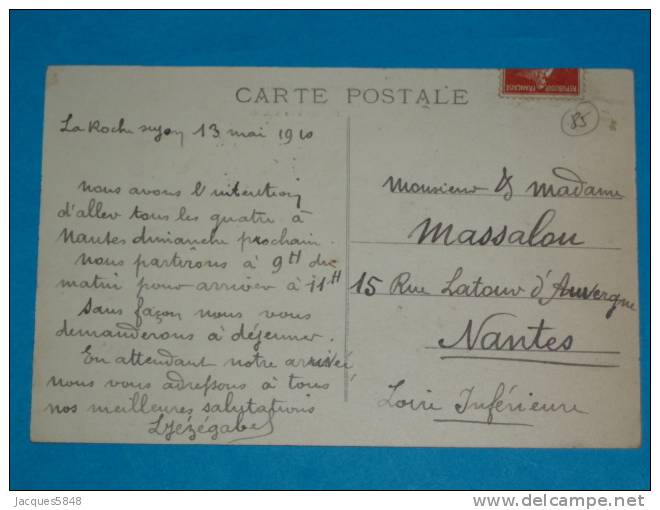 CARTE POSTALE
REPUBLIQUE FRANÇAISE
85
La Roche suyon 13 mai 1910
nous avons l'intention
d'aller tous les quatre à
Nantes dimanche prochain.
Nous partirons à 9H du
matin pour arriver à 11H
Sans façon nous vous
demanderons à déjeuner.
En attendant notre arrivée
nous vous adressons à tous
nos meilleures salutations
Monsieur & Madame
Massalou
15 Rue Latour d'Auvergne
Nantes
Loire Inférieure
Jacques5848
delcampe.net